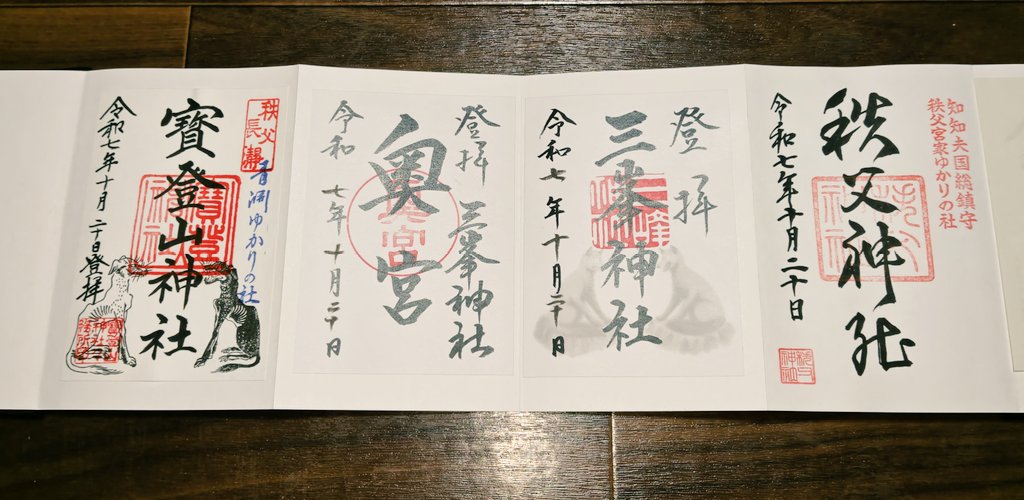 知知夫国総鎮守
秩父宮家ゆかりの社
秩父神社
令和七年十月二十日
登拝
三峯神社
令和七年十月二十日
登拝 三峯神社
奥宮
令和七年十月二十日
秩父
長瀞
青淵ゆかりの社
寳登山神社
令和七年十月二十日登拝